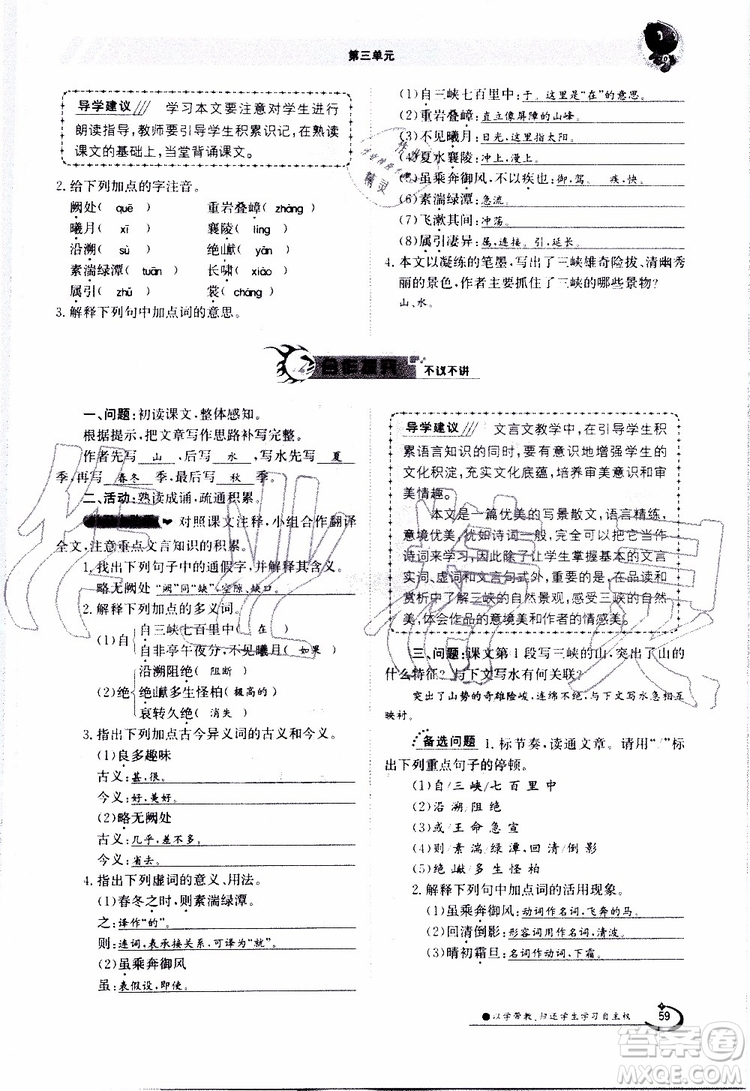 第三单元
导学建议 学习本文要注意对学生进行
朗读指导,教师要引导学生积累识记,在熟读
课文的基础上,当堂背诵课文。
2.给下列加点的字注音。
阙处( quē ) 重岩叠嶂( zhàng )
曦月( xī ) 襄陵( líng )
沿溯( sù ) 绝巘( yǎn )
素湍绿潭( tuān ) 长啸( xiào )
属引( zhǔ ) 裳( cháng )
3.解释下列句中加点词的意思。
(1)自三峡七百里中:于,这里是“在”的意思。
(2)重岩叠嶂:直立像屏障的山峰。
(3)不见曦月:日光,这里指太阳。
(4)夏水襄陵:冲上,漫上。
(5)虽乘奔御风,不以疾也:御,驾。 疾,快。
(6)素湍绿潭:急流。
(7)飞漱其间:冲荡。
(8)属引凄异:属,连接。引,延长。
4.本文以凝练的笔墨,写出了三峡雄奇险拔、清幽秀
丽的景色,作者主要抓住了三峡的哪些景物?
山、水。
合作复究 不议不讲
一、问题:初读课文,整体感知。
根据提示,把文章写作思路补写完整。
作者先写 山 ,后写水,写水先写 夏
季,再写 春冬 季,最后写 秋 季。
二、活动:熟读成诵,疏通积累。
对照课文注释,小组合作翻译
全文,注意重点文言知识的积累。
1.找出下列句子中的通假字,并解释其含义。
略无阙处 “阙”同“缺”,空隙、缺口。
2.解释下列加点的多义词。
(1)自 自三峡七百里中( 在 )
自非亭午夜分,不见曦月( 如果 )
(2)绝 沿溯阻绝( 阻断 )
绝巘多生怪柏( 极高的 )
哀转久绝( 消失 )
3.指出下列加点古今异义词的古义和今义。
(1)良多趣味
古义:甚,很。
今义:好,美好。
(2)略无阙处
古义:几乎,差不多。
今义:省去。
4.指出下列虚词的意义、用法。
(1)春冬之时,则素湍绿潭。
之:译作“的”。
则:连词,表承接关系,可译为“就”。
(2)虽乘奔御风
虽:表假设,即使。
导学建议 文言文教学中,在引导学生积
累语言知识的同时,要有意识地增强学生的
文化积淀,充实文化底蕴,培养审美情感和审
美情趣。
本文是一篇优美的写景散文,语言精练,
意境优美,犹如诗词一般,完全可以把它当作
诗词来学习。因此除了让学生掌握基本的文言
实词、虚词和文言句式以外,重在品读和
赏析中了解三峡的自然景观,感受三峡的自然
美,体会作品的意境美和作者的情感美。
三、问题:课文第1段写三峡的山,突出了山的
什么特征?与下文写水有何关联?
突出了山势的奇雄险峻、连绵不绝,与下文写水势急湍相
映衬。
备选问题 1.标节奏,读通文章。请用“/”标
出下列重点句子的停顿。
(1)自/三峡/七百里中
(2)沿溯/阻绝
(3)或/王命/急宣
(4)则/素湍/绿潭,回清/倒影
(5)绝巘/多生怪柏
2.解释下列句中加点词的活用现象。
(1)虽乘奔御风:动词作名词,飞奔的马。
(2)回清倒影:形容词用作名词,清波。
(3)晴初霜旦:名词作动词,下霜。
以学带教,归还学生学习自主权
59
作业精灵
答案圈